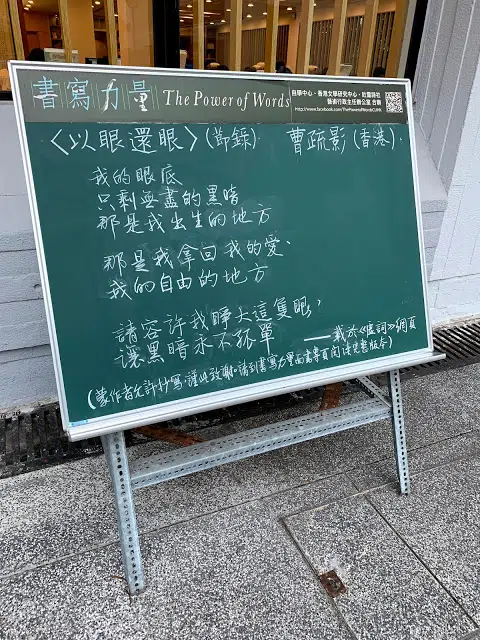 書寫力量 The Power of Words
自學中心．香港文學研究中心．吐露詩社
藝術行政主任辦公室 合辦
http://www.facebook.com/ThePowerofWordsCUHK
〈以眼還眼〉(節錄) 曹疏影(香港)
我的眼底
只剩無盡的黑暗
那是我出生的地方
那是我拿回我的愛、
我的自由的地方
請容許我睜大這隻眼，
讓黑暗永不孤單
——載於《虛詞》網頁
(蒙作者允許抄寫，謹此致謝。請到書寫力量面書專頁閱讀完整版本)